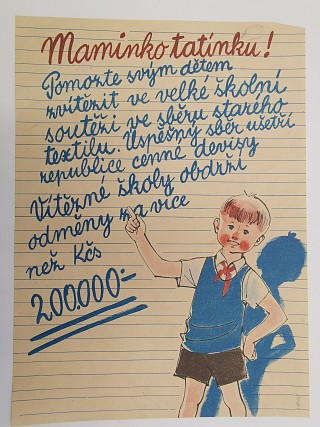 Maminko tatínku!
Pomozte svým dětem
zvítězit ve velké školní
soutěži ve sběru starého
textilu. Úspěšný sběr ušetří
republice cenné devisy
Vítězné školy obdrží
odměny za více
než Kčs
200.000:-